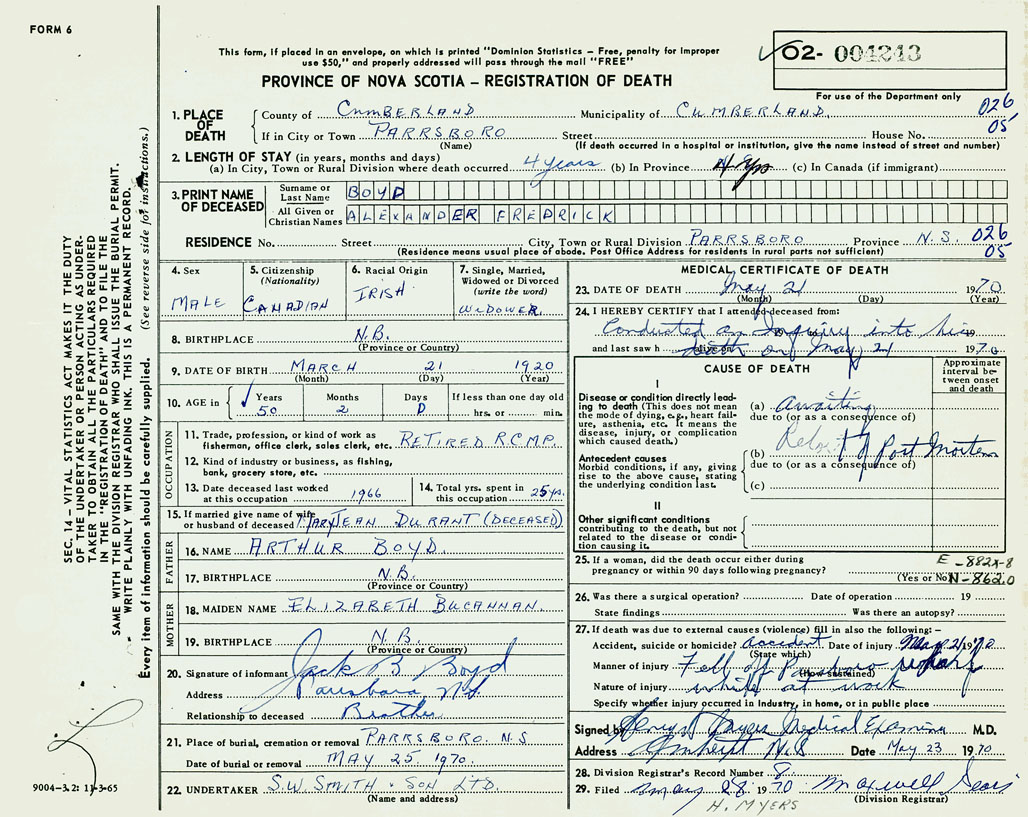 FORM 6
This form, if placed in an envelope, on which is printed "Dominion Statistics – Free, penalty for improper
use $50," and properly addressed will pass through the mail "FREE"
02- 004243
For use of the Department only
PROVINCE OF NOVA SCOTIA – REGISTRATION OF DEATH
SEC. 14 – VITAL STATISTICS ACT MAKES IT THE DUTY
OF THE UNDERTAKER OR PERSON ACTING AS UNDER-
TAKER TO OBTAIN ALL THE PARTICULARS REQUIRED
IN THE "REGISTRATION OF DEATH" AND TO FILE THE
SAME WITH THE DIVISION REGISTRAR WHO SHALL ISSUE THE BURIAL PERMIT.
WRITE PLAINLY WITH UNFADING INK. THIS IS A PERMANENT RECORD.
Every item of information should be carefully supplied. (See reverse side for instructions.)
1. PLACE OF DEATH
County of CUMBERLAND Municipality of CUMBERLAND. 026
If in City or Town PARRSBORO Street House No. 05
(Name) (If death occurred in a hospital or institution, give the name instead of street and number)
2. LENGTH OF STAY (in years, months and days)
(a) In City, Town or Rural Division where death occurred 4 years (b) In Province (c) In Canada (if immigrant)
3. PRINT NAME OF DECEASED
Surname or Last Name BOYD
All Given or Christian Names ALEXANDER FREDRICK
RESIDENCE No. Street City, Town or Rural Division PARRSBORO Province N.S. 026
(Residence means usual place of abode. Post Office Address for residents in rural parts not sufficient) 05
4. Sex
MALE
5. Citizenship
(Nationality)
CANADIAN
6. Racial Origin
IRISH
7. Single, Married,
Widowed or Divorced
(write the word)
WIDOWER
8. BIRTHPLACE N.B.
(Province or Country)
9. DATE OF BIRTH MARCH 21 1920
(Month) (Day) (Year)
10. AGE in Years Months Days If less than one day old
50 2 0 hrs. or min.
OCCUPATION
11. Trade, profession, or kind of work as
fisherman, office clerk, sales clerk, etc. RETIRED R.C.M.P.
12. Kind of industry or business, as fishing,
bank, grocery store, etc.
13. Date deceased last worked
at this occupation 1966
14. Total yrs. spent in
this occupation 25 yrs.
15. If married give name of wife
or husband of deceased MARY JEAN DURANT (DECEASED)
FATHER
16. NAME ARTHUR BOYD.
17. BIRTHPLACE N.B.
(Province or Country)
MOTHER
18. MAIDEN NAME ELIZABETH BUCANNAN.
19. BIRTHPLACE N.B.
(Province or Country)
20. Signature of informant Jack B Boyd
Address Parrsboro, N.S.
Relationship to deceased Brother
21. Place of burial, cremation or removal PARRSBORO. N.S
Date of burial or removal MAY 25, 1970.
22. UNDERTAKER S.W. SMITH & SON LTD.
(Name and address)
MEDICAL CERTIFICATE OF DEATH
23. DATE OF DEATH May 21 1970
(Month) (Day) (Year)
24. I HEREBY CERTIFY that I attended deceased from:
Conducted an Inquiry into his 19
and last saw h death on May 21 1970
CAUSE OF DEATH
Approximate
interval be-
tween onset
and death
I
Disease or condition directly lead-
ing to death (This does not mean
the mode of dying, e.g., heart fail-
ure, asthenia, etc. It means the
disease, injury, or complication
which caused death.)
(a) Awaiting
due to (or as a consequence of)
Antecedent causes
Morbid conditions, if any, giving
rise to the above cause, stating
the underlying condition last.
(b) of Post Mortem
due to (or as a consequence of)
(c)
II
Other significant conditions
contributing to the death, but not
related to the disease or condi-
tion causing it.
25. If a woman, did the death occur either during
pregnancy or within 90 days following pregnancy?
(Yes or No) N-862.0
26. Was there a surgical operation? Date of operation 19
State findings Was there an autopsy?
27. If death was due to external causes (violence) fill in also the following:–
Accident, suicide or homicide? accident Date of injury May 21 1970
(State which)
Manner of injury Fell off Parrsboro wharf
(How sustained)
Nature of injury while at work
Specify whether injury occurred in Industry, in home, or in public place
Signed by Myers Medical Examiner M.D.
Address Amherst N.S Date May 23 1970
28. Division Registrar's Record Number 8.
29. Filed May 28 1970 Maxwell
(Division Registrar)
H. MYERS
9004-3.2: 11-3-65